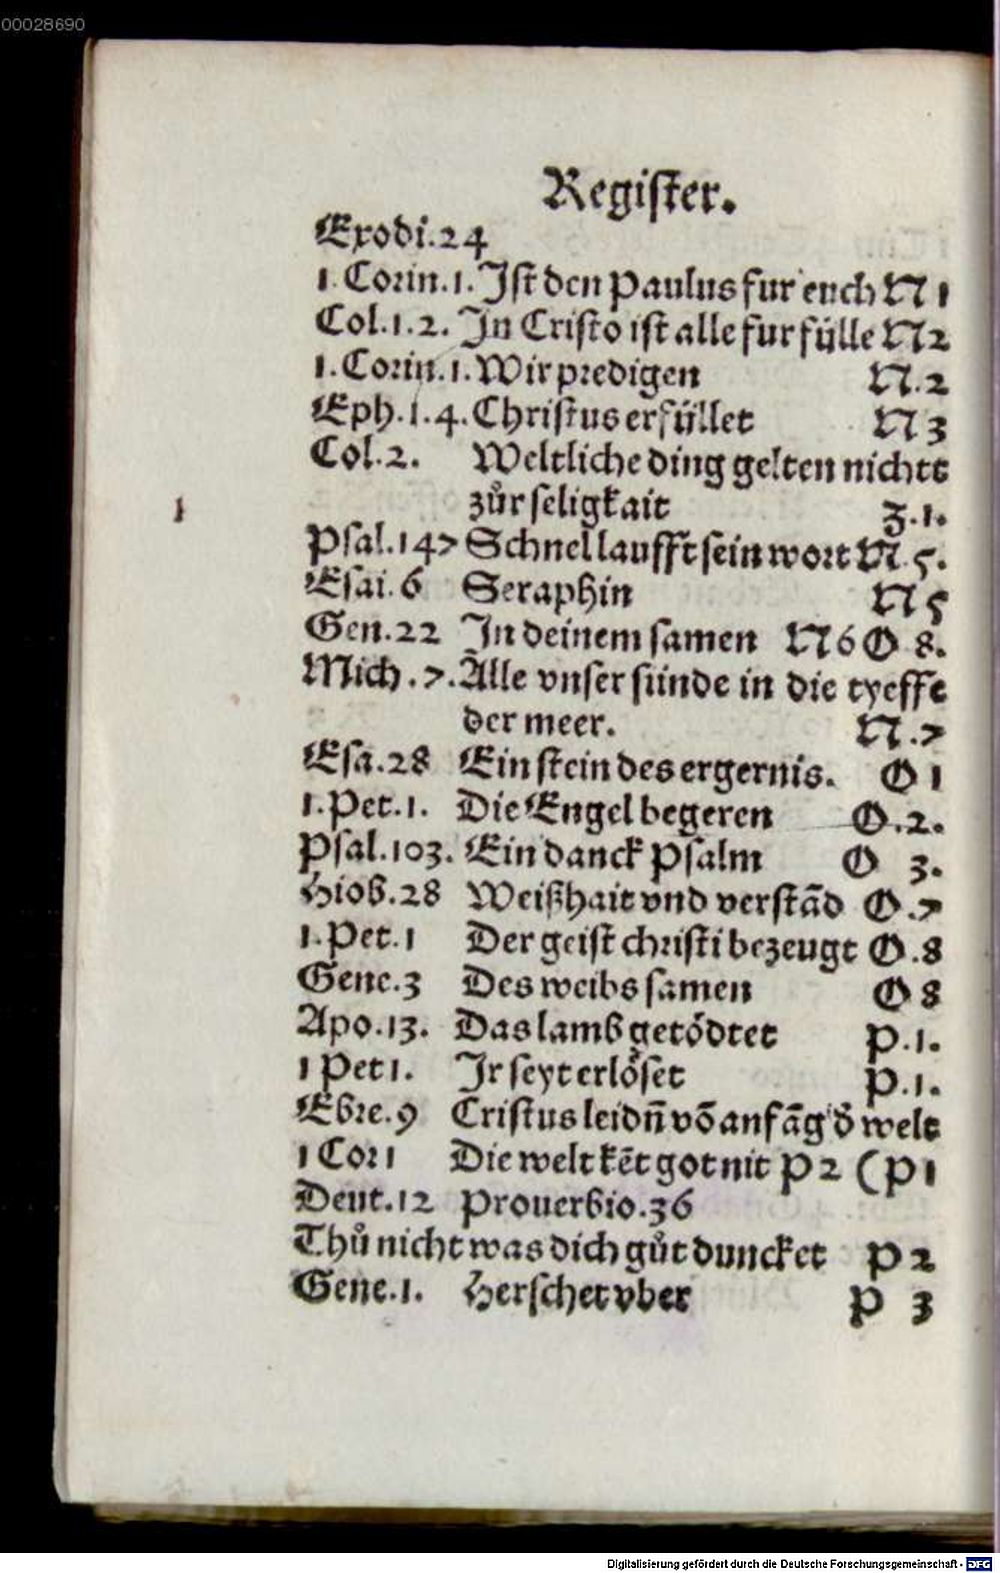 00028690
Regiſter.
Exodi.24
1. Corin.1. Iſt den Paulus fur euch N 1
Col.1.2. In Criſto iſt alle fur fülle N2
1.Corin.1.Wir predigen N.2
Eph.1.4.Chriſtus erfüllet N 3
Col.2. Weltliche ding gelten nichtt
zůr ſeligkait z.1.
Pſal.147 Schnel laufft ſein wort N.5.
Eſai.6 Seraphin N 5
Gen.22 In deinem ſamen N 6 O 8.
Mich.7.Alle vnſer ſünde in die tyeffe
der meer. N.7
Eſa.28 Ein ſtein des ergernis. O 1
1.Pet.1. Die Engel begeren O.2.
Pſal.103. Ein danck Pſalm O 3.
Hiob.28 Weißhait vnd verſtãd O.7
1.Pet.1 Der geiſt chriſti bezeugt O.8
Gene.3 Des weibs ſamen O 8
Apo.13. Das lamb getödtet P.1.
1 Pet 1. Ir ſeyt erlöſet P.1.
Ebre.9 Criſtus leidñ võ anfãg d̃ welt
1 Cor 1 Die welt kẽt got nit P 2 (P 1
Deut.12 Prouerbio.36
Thů nicht was dich gůt duncket P 2
Gene.1. Herſchet vber P 3
1
Digitalisierung gefördert durch die Deutsche Forschungsgemeinschaft - DFG